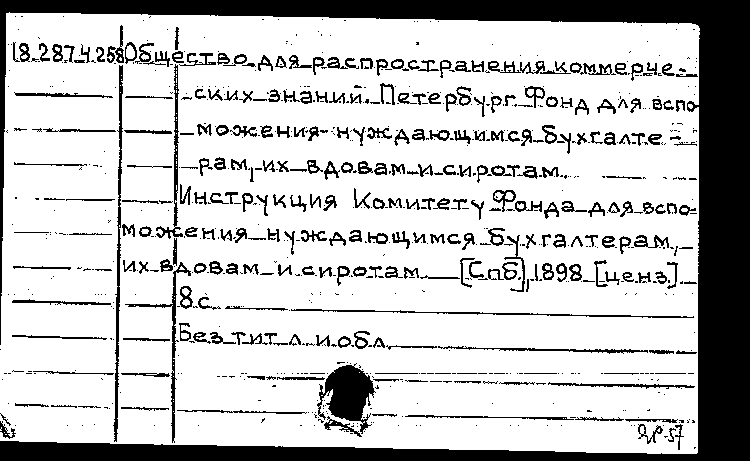 18.287.4.258 Общество для распространения коммерче-
ских знаний. Петербург. Фонд для вспо-
можения нуждающимся бухгалте-
рам, их вдовам и сиротам.
Инструкция Комитету Фонда для вспо-
можения нуждающимся бухгалтерам,
их вдовам и сиротам. [Спб], 1898 [ценз.]
8 с.
Без тит. л. и обл.